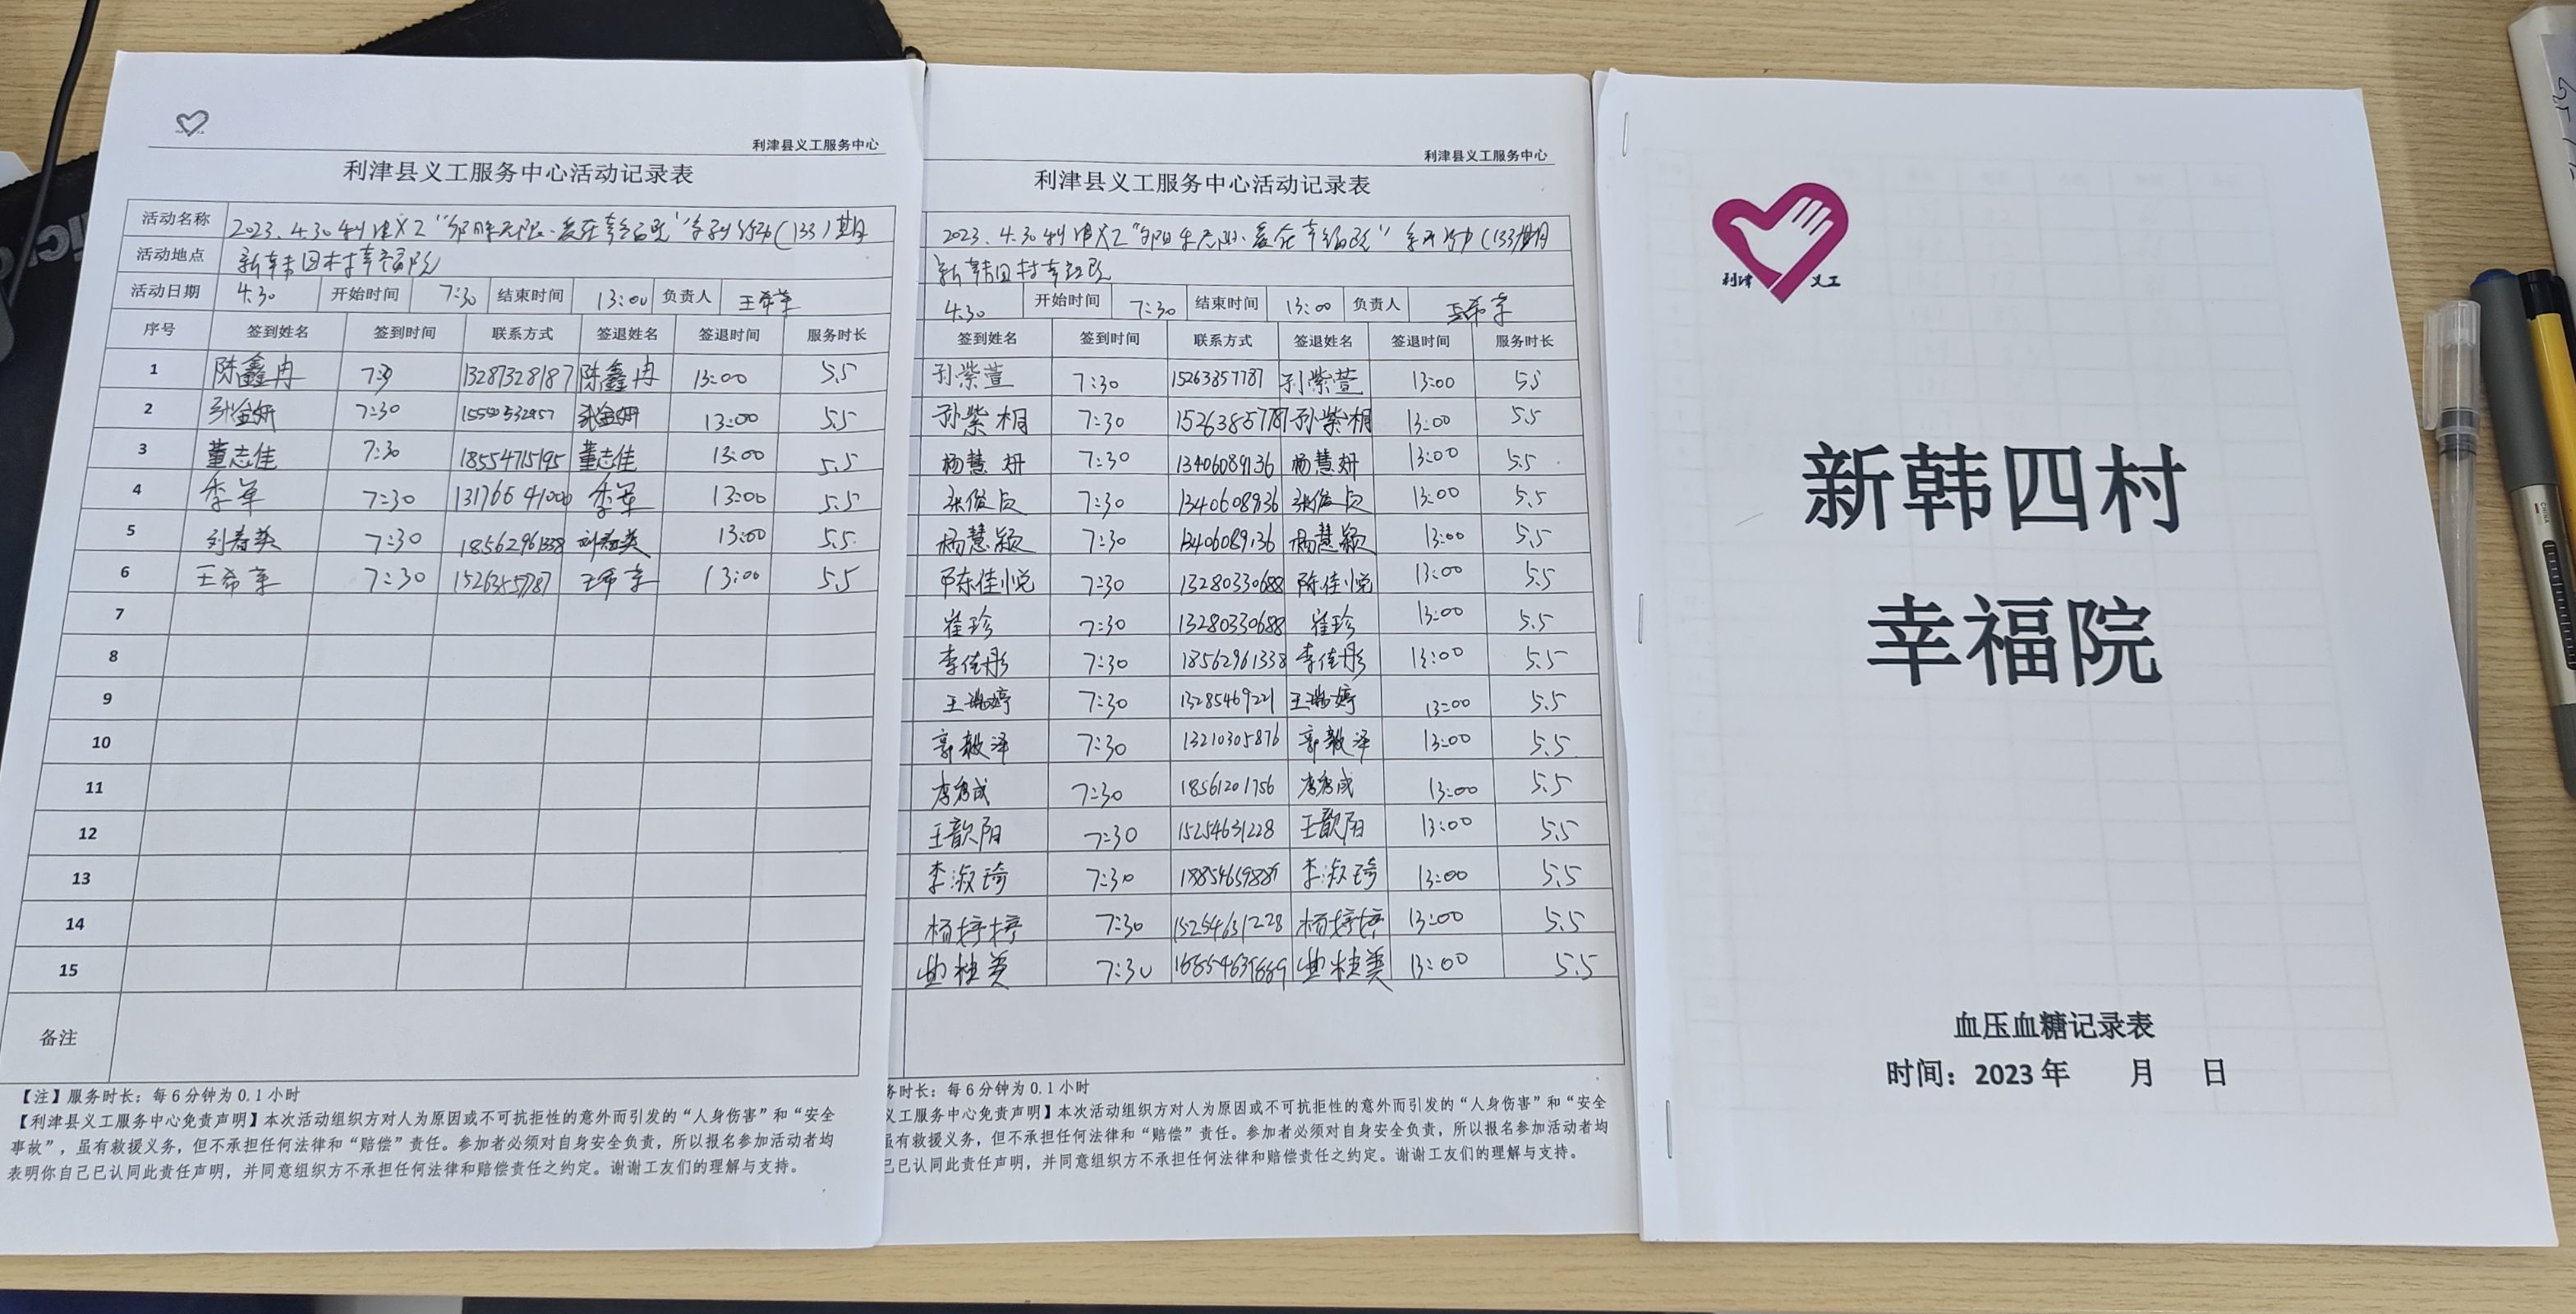 利津县义工服务中心
利津县义工服务中心活动记录表
活动名称 2023.4.30利津义工“ 爱在幸福院”系列活动(133)期
活动地点 新韩四村幸福院
活动日期 4.30 开始时间 7:30 结束时间 13:00 负责人 王希军
序号 签到姓名 签到时间 联系方式 签退姓名 签退时间 服务时长
1 陈鑫冉 7:30 13287328187 陈鑫冉 13:00 5.5
2 张金妍 7:30 张金妍 13:00 5.5
3 董志佳 7:30 18554715195 董志佳 13:00 5.5
4 李军 7:30 李军 13:00 5.5
5 刘春英 7:30 18562961338 刘春英 13:00 5.5
6 王希军 7:30 王希军 13:00 5.5
7
8
9
10
11
12
13
14
15
备注
【注】服务时长：每6分钟为0.1小时
【利津县义工服务中心免责声明】本次活动组织方对人为原因或不可抗拒性的意外而引发的“人身伤害”和“安全
事故”，虽有救援义务，但不承担任何法律和“赔偿”责任。参加者必须对自身安全负责，所以报名参加活动者均
表明你自己已认同此责任声明，并同意组织方不承担任何法律和赔偿责任之约定。谢谢工友们的理解与支持。
利津县义工服务中心
利津县义工服务中心活动记录表
2023.4.30利津义工“ 爱在幸福院”系列活动(133)期
新韩四村幸福院
4.30 开始时间 7:30 结束时间 13:00 负责人 王希军
签到姓名 签到时间 联系方式 签退姓名 签退时间 服务时长
孙紫萱 7:30 15263857787 孙紫萱 13:00 5.5
孙紫桐 7:30 孙紫桐 13:00 5.5
杨慧妍 7:30 13406089136 杨慧妍 13:00 5.5
张俊贞 7:30 张俊贞 13:00 5.5
杨慧颖 7:30 13406089136 杨慧颖 13:00 5.5
陈佳悦 7:30 13280330688 陈佳悦 13:00 5.5
崔珍 7:30 13280330688 崔珍 13:00 5.5
李佳彤 7:30 18562961338 李佳彤 13:00 5.5
王瑞婷 7:30 13285469221 王瑞婷 13:00 5.5
郭毅泽 7:30 13210305876 郭毅泽 13:00 5.5
李秀成 7:30 18561201756 李秀成 13:00 5.5
王歆阳 7:30 15254631228 王歆阳 13:00 5.5
李淑琦 7:30 李淑琦 13:00 5.5
杨婷婷 7:30 15254631228 杨婷婷 13:00 5.5
曲桂美 7:30 曲桂美 13:00 5.5
务时长：每6分钟为0.1小时
义工服务中心免责声明】本次活动组织方对人为原因或不可抗拒性的意外而引发的“人身伤害”和“安全
虽有救援义务，但不承担任何法律和“赔偿”责任。参加者必须对自身安全负责，所以报名参加活动者均
己已认同此责任声明，并同意组织方不承担任何法律和赔偿责任之约定。谢谢工友们的理解与支持。
利津 义工
新韩四村
幸福院
血压血糖记录表
时间：2023年 月 日